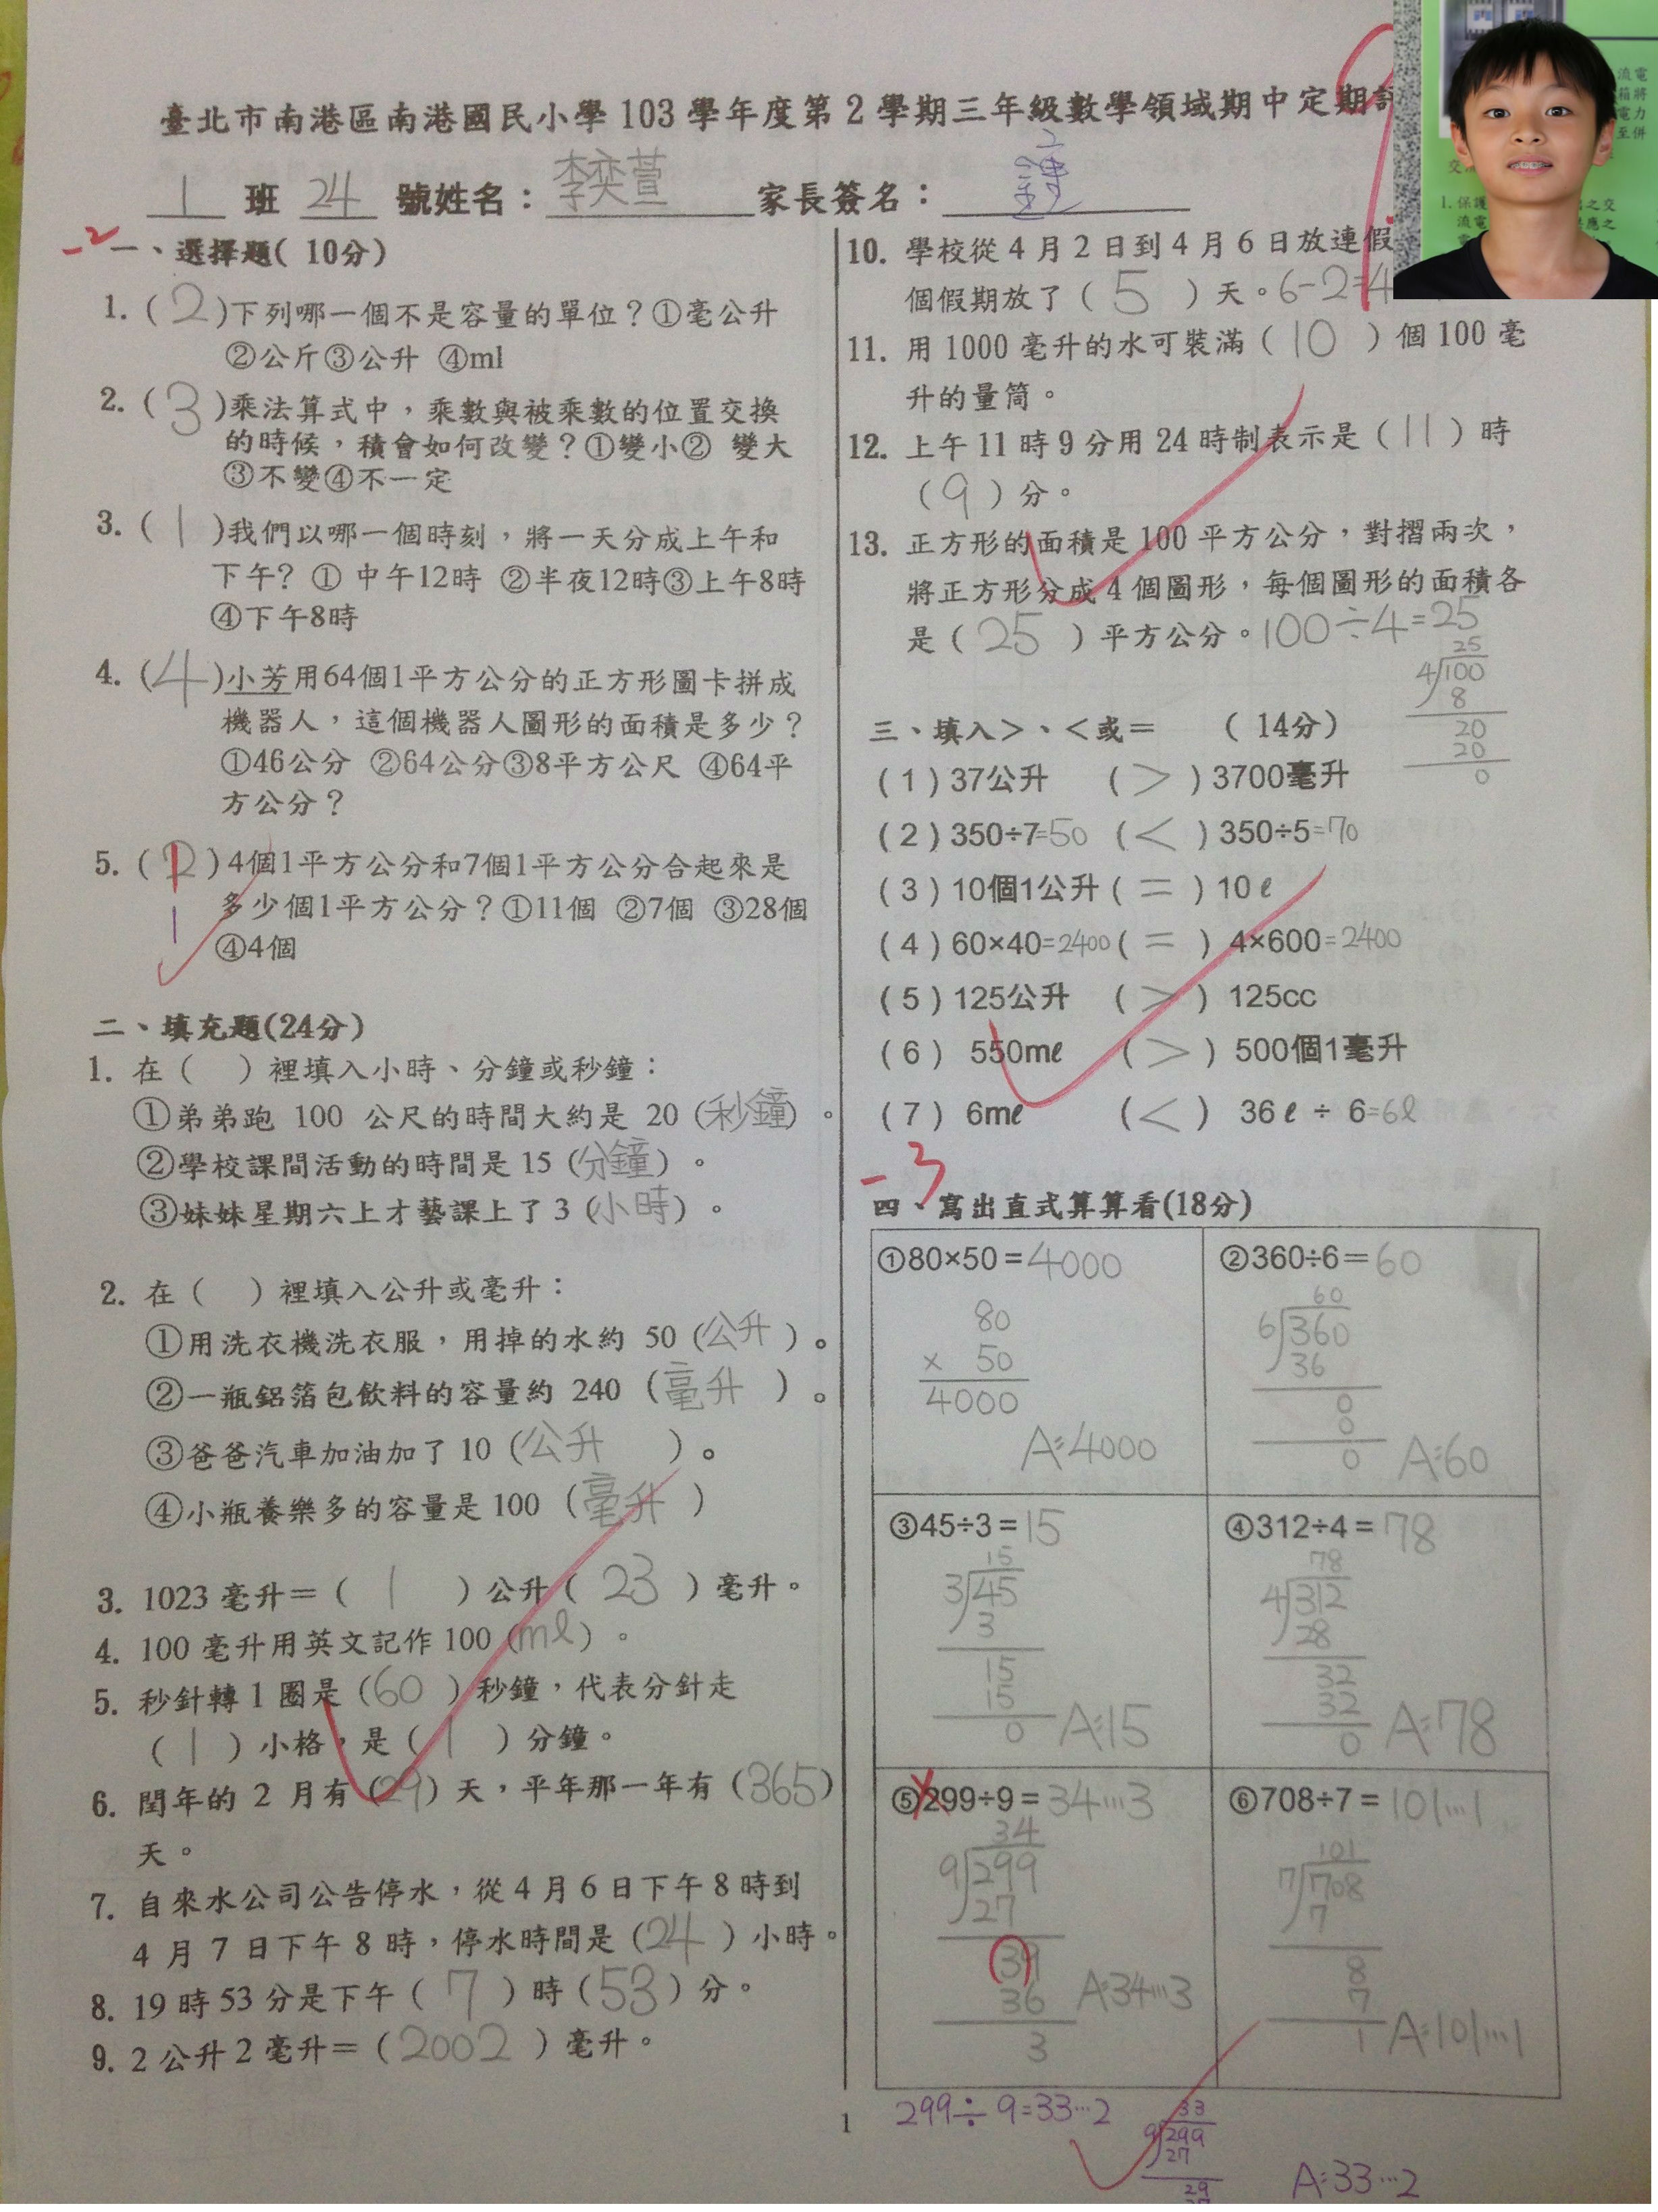 臺北市南港區南港國民小學 103 學年度第 2 學期三年級數學領域期中定期
1 班 24 號姓名：李奕萱 家長簽名：
-2
一、選擇題( 10分)
1. ( 2 )下列哪一個不是容量的單位？①毫公升
②公斤③公升 ④ml
2. ( 3 )乘法算式中，乘數與被乘數的位置交換
的時候，積會如何改變？①變小② 變大
③不變④不一定
3. ( 1 )我們以哪一個時刻，將一天分成上午和
下午? ① 中午12時 ②半夜12時③上午8時
④下午8時
4. ( 4 )小芳用64個1平方公分的正方形圖卡拼成
機器人，這個機器人圖形的面積是多少？
①46公分 ②64公分③8平方公尺 ④64平
方公分？
5. ( 2 ) 4個1平方公分和7個1平方公分合起來是
1 多少個1平方公分？①11個 ②7個 ③28個
④4個
二、填充題(24分)
1. 在（ ）裡填入小時、分鐘或秒鐘：
①弟弟跑 100 公尺的時間大約是 20 (秒鐘) 。
②學校課間活動的時間是 15 (分鐘) 。
③妹妹星期六上才藝課上了 3 (小時) 。
2. 在（ ）裡填入公升或毫升：
①用洗衣機洗衣服，用掉的水約 50 (公升 )。
②一瓶鋁箔包飲料的容量約 240 (毫升 ) 。
③爸爸汽車加油加了 10 (公升 )。
④小瓶養樂多的容量是 100 (毫升 )
3. 1023 毫升＝( 1 ) 公升 ( 23 ) 毫升。
4. 100 毫升用英文記作 100 (mℓ) 。
5. 秒針轉 1 圈是 (60 ) 秒鐘，代表分針走
( 1 ) 小格，是 ( 1 ) 分鐘。
6. 閏年的 2 月有 (29) 天，平年那一年有 (365)
天。
7. 自來水公司公告停水，從 4 月 6 日下午 8 時到
4 月 7 日下午 8 時，停水時間是 (24 ) 小時。
8. 19 時 53 分是下午 ( 7 ) 時 (53 ) 分。
9. 2 公升 2 毫升＝ ( 2002 ) 毫升。
10. 學校從 4 月 2 日到 4 月 6 日放連假
個假期放了 ( 5 ) 天。6-2=4
11. 用 1000 毫升的水可裝滿 ( 10 ) 個 100 毫
升的量筒。
12. 上午 11 時 9 分用 24 時制表示是 ( 11 ) 時
( 9 ) 分。
13. 正方形的面積是 100 平方公分，對摺兩次，
將正方形分成 4 個圖形，每個圖形的面積各
是 ( 25 ) 平方公分。100÷4=25
25
4 100
8
20
20
0
三、填入＞、＜或＝ ( 14分)
( 1 ) 37公升 ( > ) 3700毫升
( 2 ) 350÷7=50 ( < ) 350÷5=70
( 3 ) 10個1公升 ( = ) 10 ℓ
( 4 ) 60×40=2400 ( = ) 4×600=2400
( 5 ) 125公升 ( > ) 125cc
( 6 ) 550mℓ ( > ) 500個1毫升
( 7 ) 6mℓ ( < ) 36 ℓ ÷ 6=6ℓ
-3
四、寫出直式算算看(18分)
①80×50＝4000
80
× 50
4000
A:4000
②360÷6＝60
60
6 360
36
0
0
0 A:60
③45÷3＝15
15
3 45
3
15
15
0 A:15
④312÷4＝78
78
4 312
28
32
32
0 A:78
⑤299÷9＝34…3
34
9 299
27
39
36 A:34…3
3
⑥708÷7＝101…1
101
7 708
7
8
7
1 A:101…1
299÷9=33…2
33
9 299
27
29
A:33…2
1
流電
箱將
電力
至併
交流
1.保護 之交
流電 應之